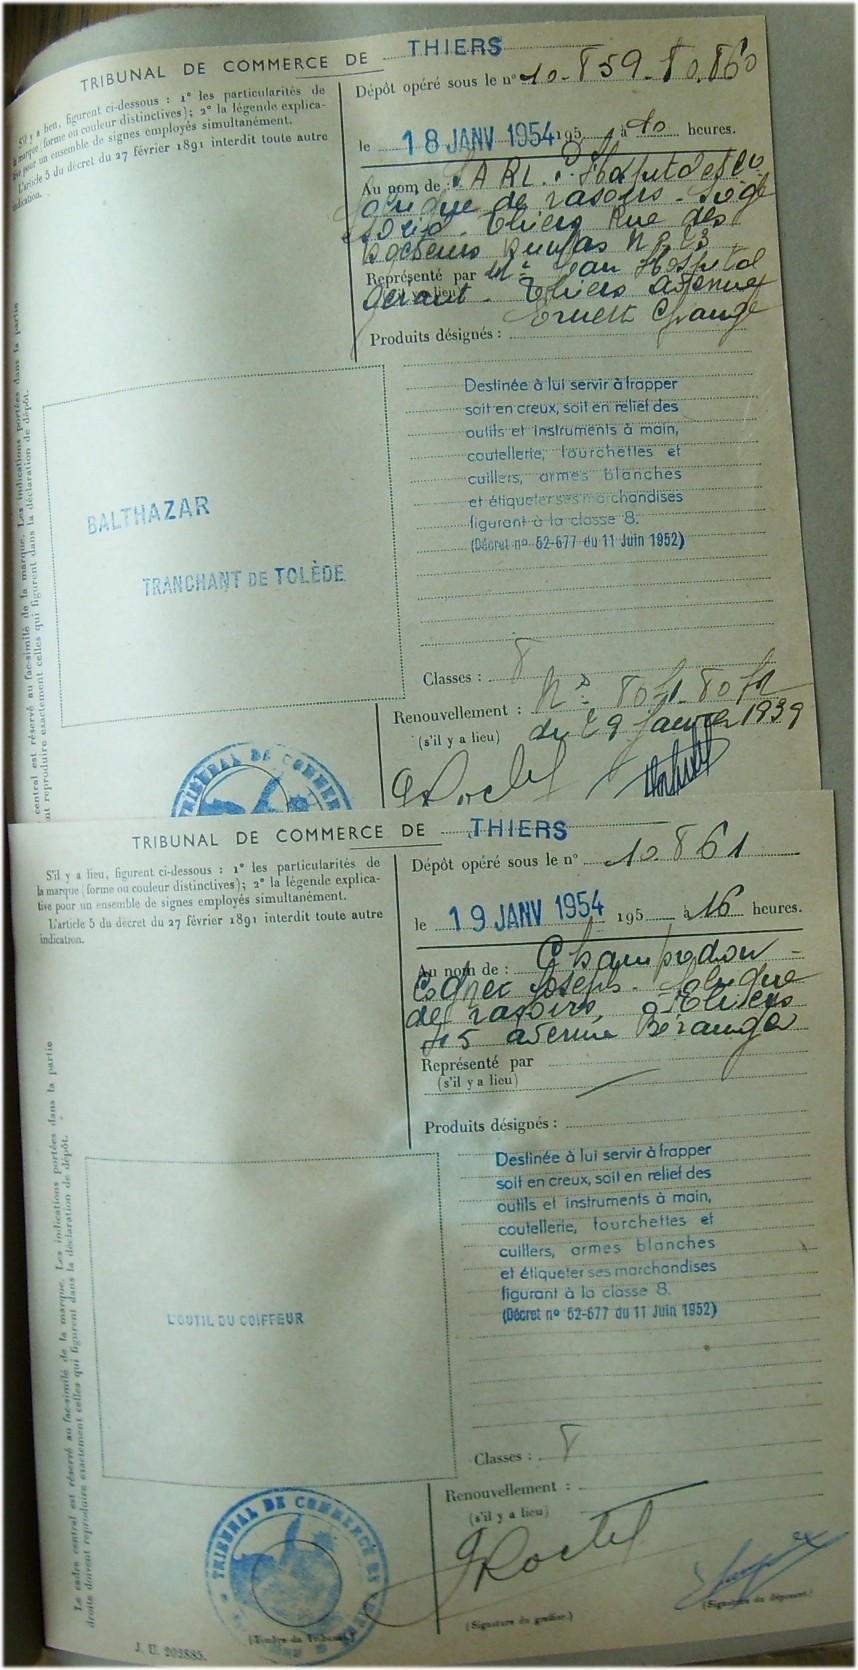 TRIBUNAL DE COMMERCE DE THIERS
S'il y a lieu, figurent ci-dessous : 1° les particularités de
la marque (forme ou couleur distinctives); 2° la légende explica-
tive pour un ensemble de signes employés simultanément.
L'article 5 du décret du 27 février 1891 interdit toute autre
indication.
Dépôt opéré sous le n° 10.859-10.860
le 18 JANV 1954 195 à 10 heures.
Au nom de : SARL. Hospital et Co
fabrique de rasoirs - Siège
social - Thiers Rue des
Docteurs Dumas N° 23
Représenté par Mr Jean Hospital
(s'il y a lieu)
Gérant - Thiers Avenue
Produits désignés :
Destinée à lui servir à frapper
soit en creux, soit en relief des
outils et instruments à main,
coutellerie, fourchettes et
cuillers, armes blanches
et étiqueter ses marchandises
figurant à la classe 8.
(Décret n° 52-677 du 11 Juin 1952)
BALTHAZAR
TRANCHANT DE TOLÈDE
Classes : 8
Renouvellement : Nos 8071-8072
(s'il y a lieu) du 29 Janvier 1939
TRIBUNAL DE COMMERCE
central est réservé au fac-similé de la marque. Les indications portées dans la partie
nt reproduire exactement celles qui figurent dans la déclaration de dépôt.
TRIBUNAL DE COMMERCE DE THIERS
S'il y a lieu, figurent ci-dessous : 1° les particularités de
la marque (forme ou couleur distinctives); 2° la légende explica-
tive pour un ensemble de signes employés simultanément.
L'article 5 du décret du 27 février 1891 interdit toute autre
indication.
Dépôt opéré sous le n° 10.861
le 19 JANV 1954 195 à 16 heures.
Au nom de : Champrodon -
Cognet Joseph - fabrique
de rasoirs, à Thiers
75 avenue Béranger
Représenté par
(s'il y a lieu)
Produits désignés :
Destinée à lui servir à frapper
soit en creux, soit en relief des
outils et instruments à main,
coutellerie, fourchettes et
cuillers, armes blanches
et étiqueter ses marchandises
figurant à la classe 8.
(Décret n° 52-677 du 11 Juin 1952)
L'OUTIL DU COIFFEUR
Classes : 8
Renouvellement :
(s'il y a lieu)
TRIBUNAL DE COMMERCE DE THIERS
(Timbre du Tribunal)
(Signature du greffier.)
(Signature du déposant.)
Le cadre central est réservé au fac-similé de la marque. Les indications portées dans la partie
droite doivent reproduire exactement celles qui figurent dans la déclaration de dépôt.
J. U. 202885.